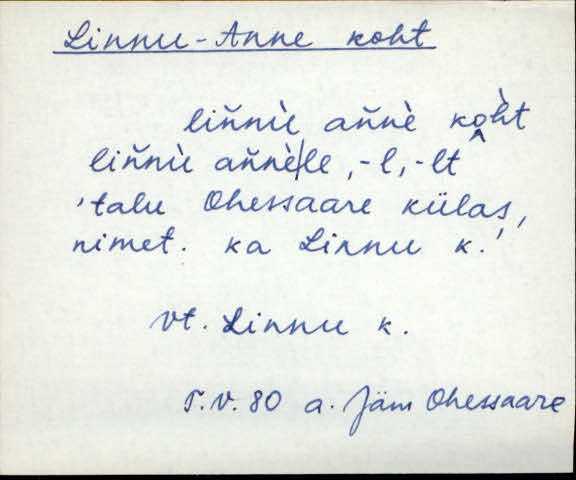 Linnu-Anne koht
liǹnù aǹnè kòht
liǹnù aǹnè/le, -l, -lt
'talu Ohessaare külas,
nimet. ka Linnu k.'
vt. Linnu k.
T.V. 80 a. Jäm Ohessaare